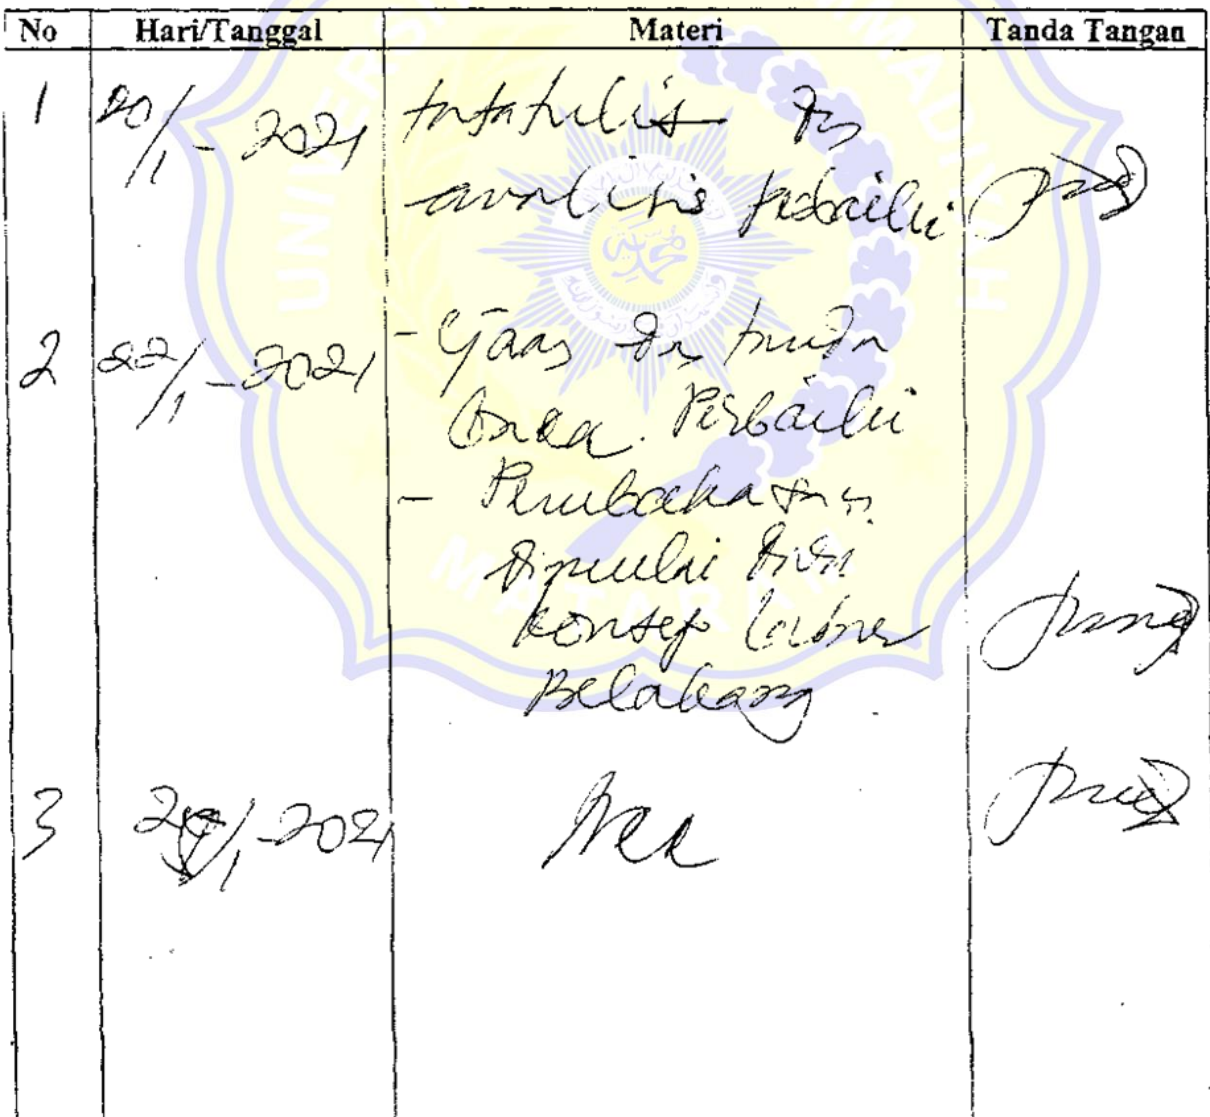 No Hari/Tanggal Materi Tanda Tangan
1 20/1-2021 tatatulis dn
analisis perbaiki
2 22/1-2021 - Ejaan dn tanda
baca. Perbaiki
- Pembahasan
dimulai dari
konsep latar
Belakang
3 2021
Acc
UNIVERS MMADIYAH
MATARAM